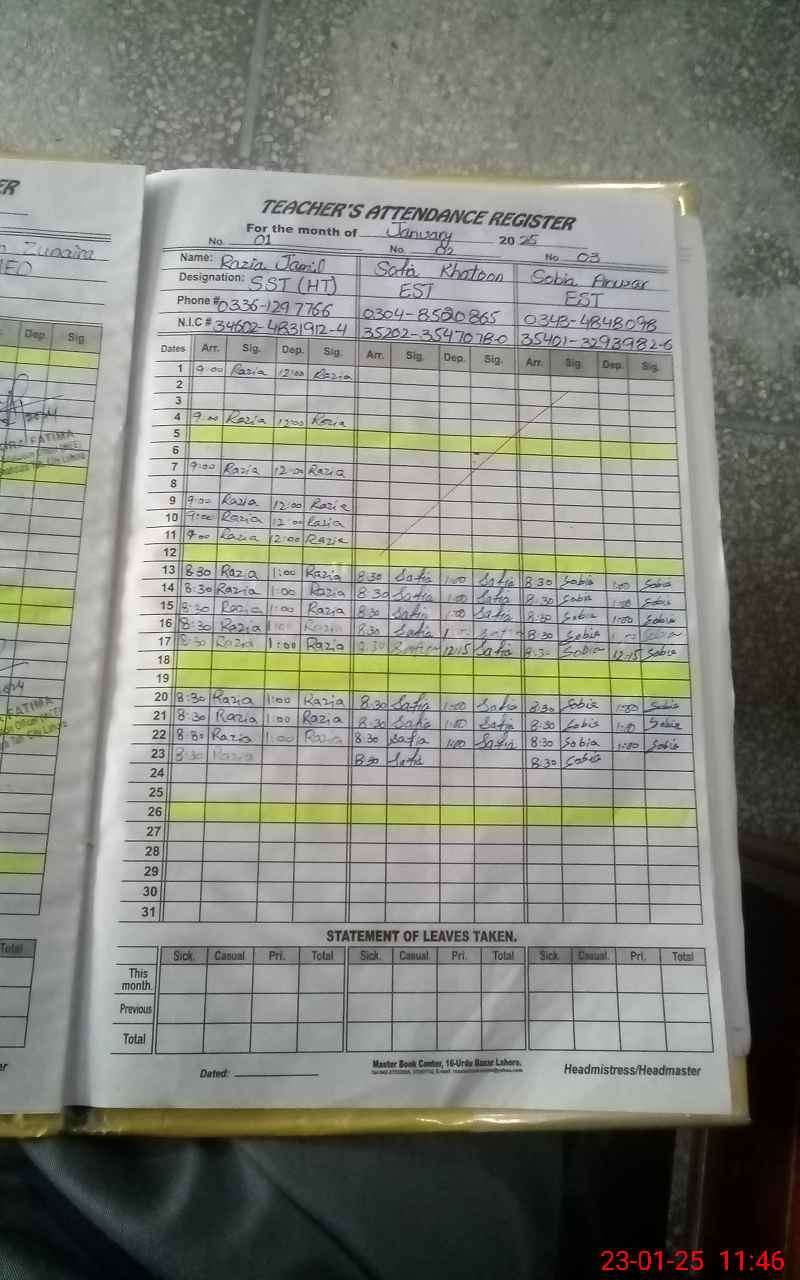 ER
Zunaira
Dep. Sig.
FATIMA
FATIMA
Total
TEACHER'S ATTENDANCE REGISTER
For the month of January 2025
No. 01 No. 02 No. 03
Name: Razia Jamil Safia Khatoon Sobia Anwar
Designation: SST (HT) EST EST
Phone # 0336-1297766 0304-8520865 0348-4848098
N.I.C # 34602-4831912-4 35202-3547078-0 35401-3293982-6
Dates Arr. Sig. Dep. Sig. Arr. Sig. Dep. Sig. Arr. Sig. Dep. Sig.
1 9:00 Razia 12:00 Razia
2
3
4 9:00 Razia 12:00 Razia
5
6
7 9:00 Razia 12:00 Razia
8
9 9:00 Razia 12:00 Razia
10 9:00 Razia 12:00 Razia
11 9:00 Razia 12:00 Razia
12
13 8:30 Razia 1:00 Razia 8:30 Safia 1:00 Safia 8:30 Sobia 1:00 Sobia
14 8:30 Razia 1:00 Razia 8:30 Safia 1:00 Safia 8:30 Sobia 1:00 Sobia
15 8:30 Razia 1:00 Razia 8:30 Safia 1:00 Safia 8:30 Sobia 1:00 Sobia
16 8:30 Razia 1:00 Razia 8:30 Safia 1:00 Safia 8:30 Sobia 1:00 Sobia
17 8:30 Razia 1:00 Razia 8:30 Safia 12:15 Safia 8:30 Sobia 12:15 Sobia
18
19
20 8:30 Razia 1:00 Razia 8:30 Safia 1:00 Safia 8:30 Sobia 1:00 Sobia
21 8:30 Razia 1:00 Razia 8:30 Safia 1:00 Safia 8:30 Sobia 1:00 Sobia
22 8:30 Razia 1:00 Razia 8:30 Safia 1:00 Safia 8:30 Sobia 1:00 Sobia
23 8:30 Razia 8:30 Safia 8:30 Sobia
24
25
26
27
28
29
30
31
STATEMENT OF LEAVES TAKEN.
Sick. Casual. Pri. Total Sick. Casual. Pri. Total Sick. Casual. Pri. Total
This month.
Previous
Total
Dated: Master Book Center, 16-Urdu Bazar Lahore. Headmistress/Headmaster
23-01-25 11:46